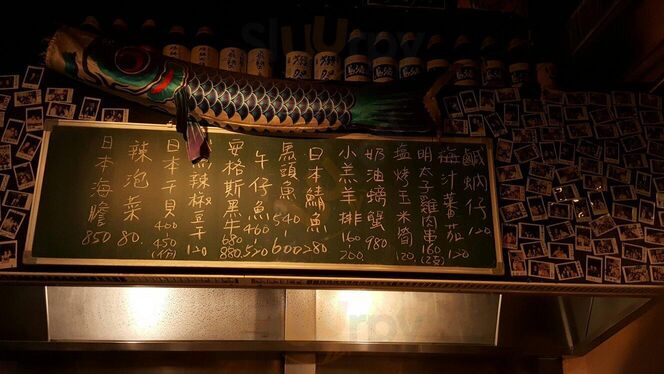 鹹蜆仔 120
梅汁番茄 120
明太子雞串 160 (2支)
塩烤玉米筍 120
奶油螃蟹 980
小羔羊排 160 200
日本鯖魚 280
馬頭魚 540-600
午仔魚 460-520
安格斯黑牛 680 880
辣椒豆干 120
日本干貝 400 450 (份)
辣泡菜 80.
日本海膽 850